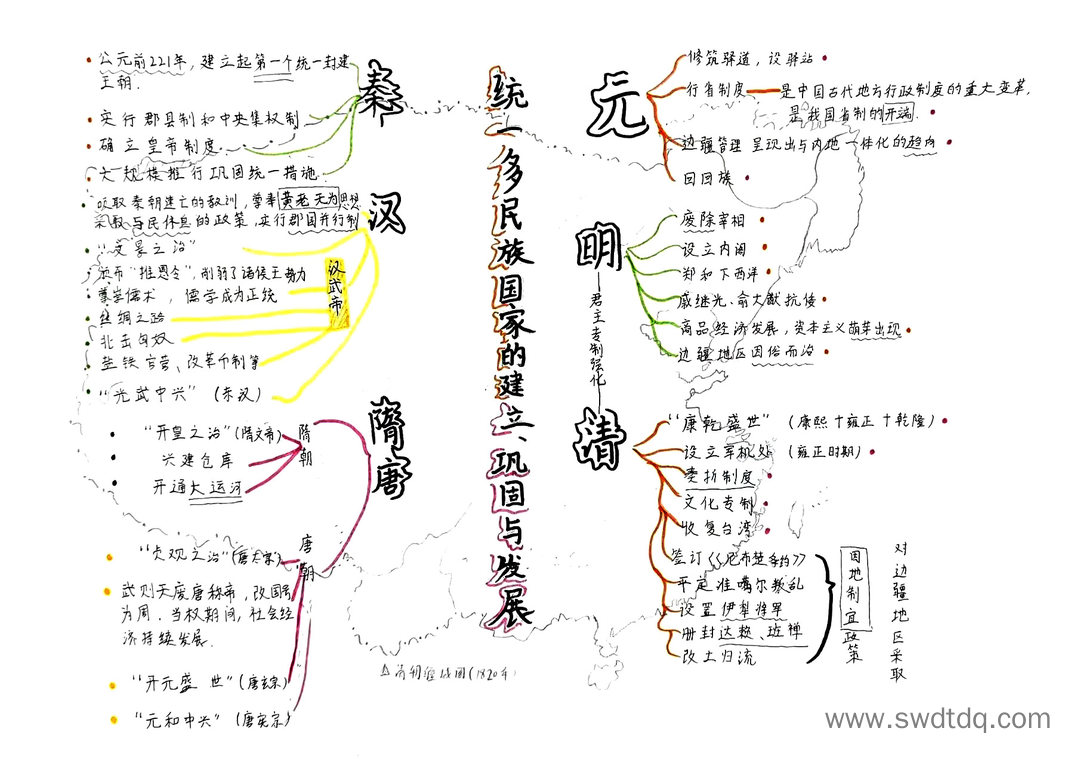 统一多民族国家的建立、巩固与发展
秦
公元前221年，建立起第一个统一封建
王朝.
实行郡县制和中央集权制
确立皇帝制度.
大规模推行巩固统一措施.
汉
吸取秦朝速亡的教训，尊奉黄老无为思想
采取与民休息的政策，实行郡国并行制
“文景之治”
颁布“推恩令”，削弱了诸侯王势力
尊崇儒术，儒学成为正统
丝绸之路
北击匈奴
盐铁官营、改革币制等
汉武帝
“光武中兴”（东汉）
隋唐
“开皇之治”(隋文帝)
兴建仓库
开通大运河
隋朝
“贞观之治”(唐太宗)
武则天废唐称帝，改国号
为周.当权期间，社会经
济持续发展.
“开元盛世”(唐玄宗)
“元和中兴”(唐宪宗)
唐朝
元
修筑驿道，设驿站
行省制度——是中国古代地方行政制度的重大变革，
是我国省制的开端.
边疆管理呈现出与内地一体化的趋向
回回族
明
废除宰相
设立内阁
郑和下西洋
戚继光、俞大猷抗倭
商品经济发展，资本主义萌芽出现
边疆地区因俗而治
君主专制强化
清
“康乾盛世”（康熙＋雍正＋乾隆）
设立军机处（雍正时期）
奏折制度
文化专制
收复台湾
签订《尼布楚条约》
平定准噶尔叛乱
设置伊犁将军
册封达赖、班禅
改土归流
因地制宜政策
对边疆地区采取
△清朝疆域图(1820年)
www.swdtdq.com